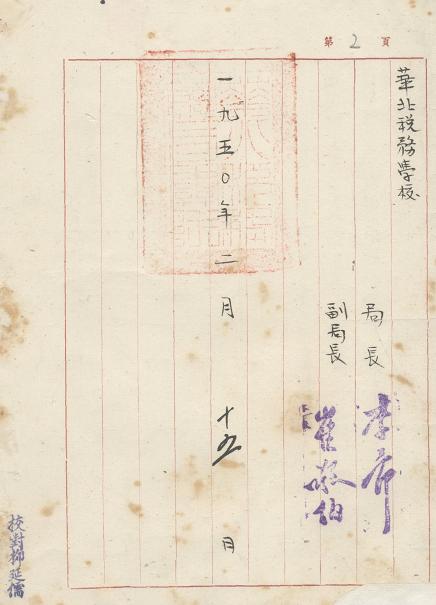 第2頁
華北税務學校
局長 李
副局長 崔敬伯
一九五〇年二月十五日
校對柳延儒